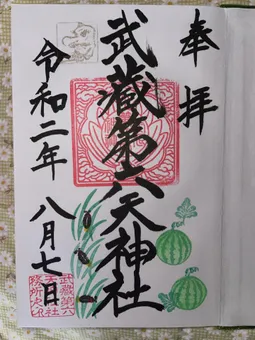 奉拝
武蔵第六天神社
令和二年 八月七日
武蔵第六
天神社
務所之印